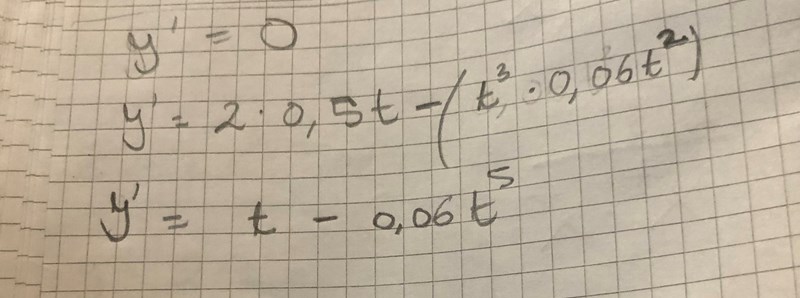 y' = 0
y' = 2 · 0,5t - (t³ · 0,06t²)
y' = t - 0,06t⁵